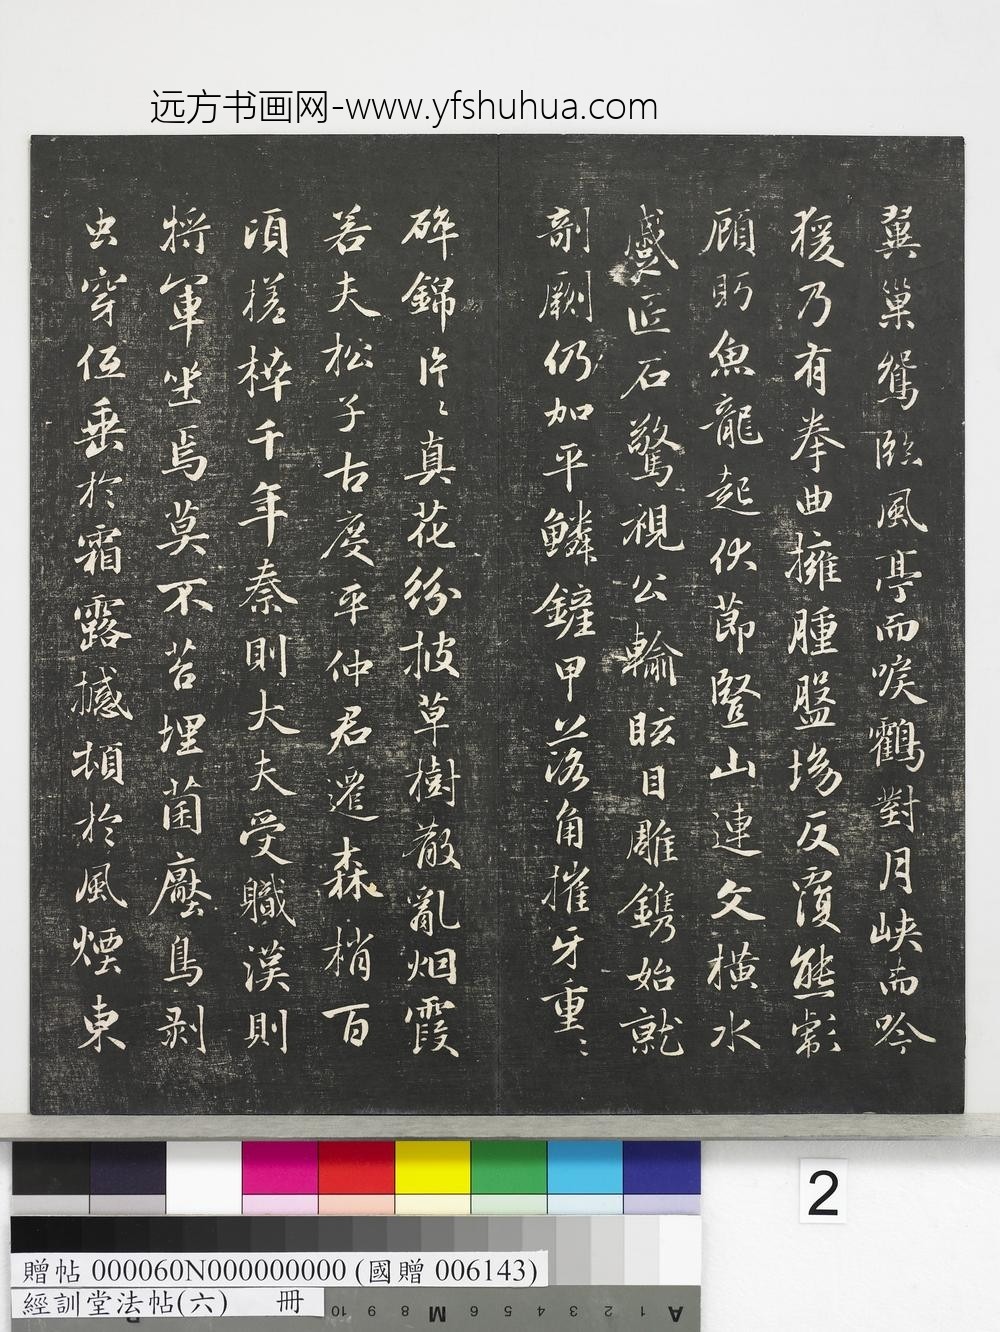 远方书画网-www.yfshuhua.com
翼巢鴛臨風亭而唳鶴對月峽而吟
猨乃有拳曲擁腫盤坳反覆熊彪
顧盼魚龍起伏節豎山連文橫水
蹙匠石驚視公輸眩目雕鐫始就
剞劂仍加平鱗鏟甲落角摧牙重〻
碎錦片〻真花紛披草樹散亂烟霞
若夫松子古度平仲君遷森梢百
頃槎枿千年秦則大夫受職漢則
將軍坐焉莫不苔埋菌壓鳥剥
虫穿低垂於霜露撼頓於風煙東
2
贈帖 000060N000000000 (國贈 006143)
經訓堂法帖(六) 冊
10 9 8 M 6 5 4 3 2 1 A